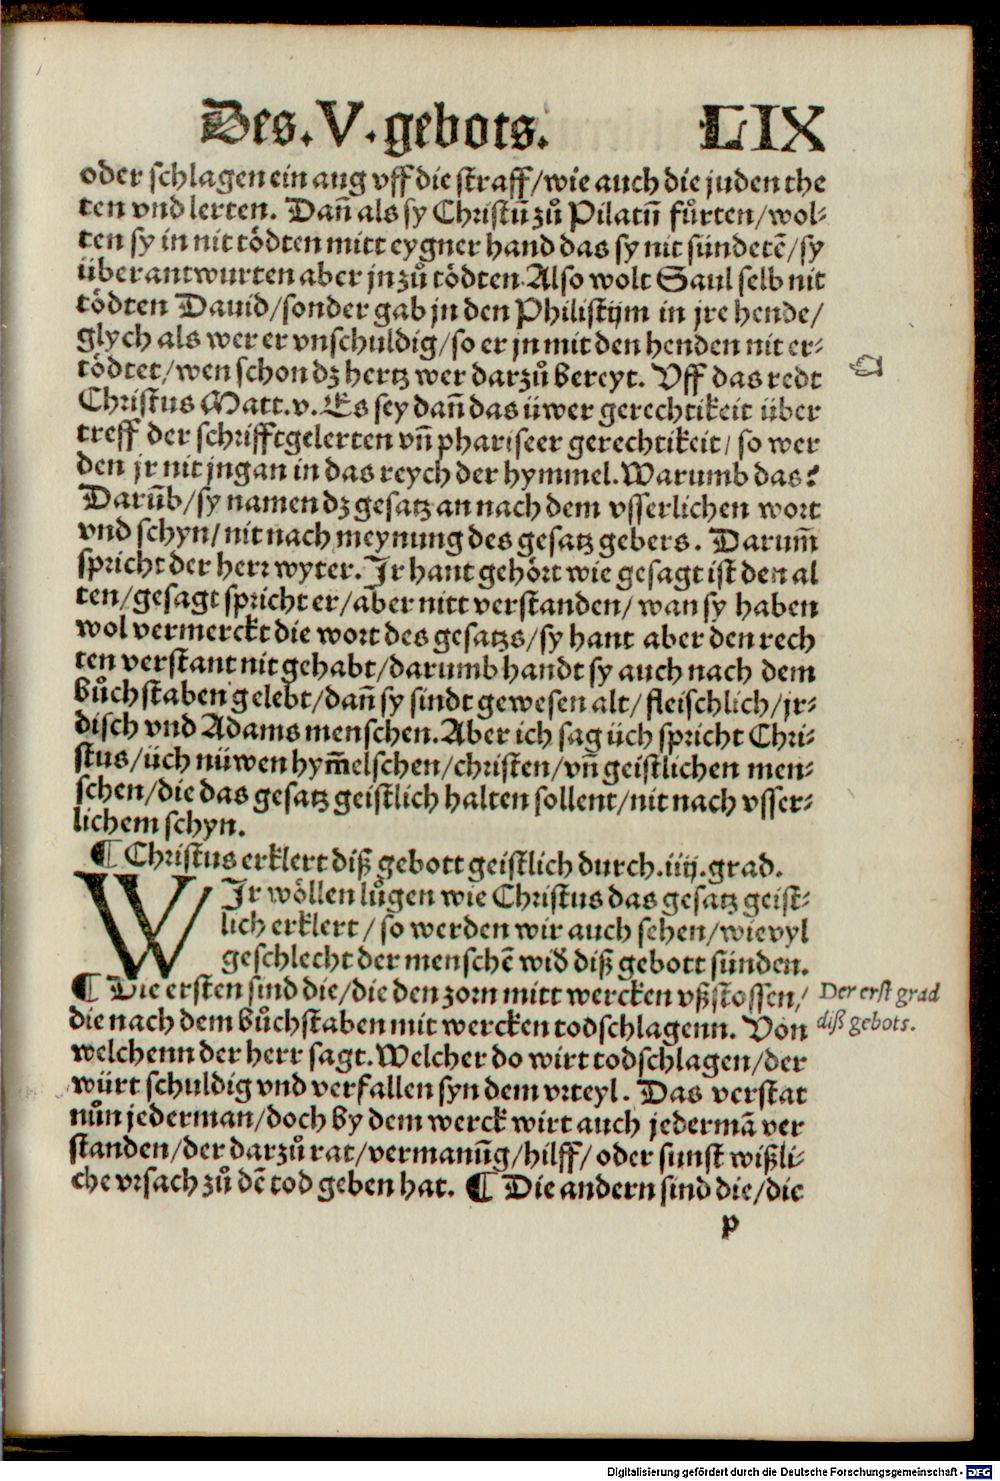 Des. V. gebots. LIX
oder schlagen ein aug vff die straff/wie auch die juden the
ten vnd lerten. Dañ als sy Christū zů Pilatū fůrten/wol-
ten sy in nit tödten mitt eygner hand das sy nit sündetē/sy
überantwurten aber jn zů tödten. Also wolt Saul selb nit
tödten Dauid/sonder gab jn den Philistijm in jre hende/
glych als wer er vnschuldig/so er jn mit den henden nit er-
tödtet/wen schon dz hertz wer darzů bereyt. Vff das redt
Christus Matt.v. Es sey dañ das üwer gerechtikeit über
treff der schrifftgelerten vñ phariseer gerechtikeit/ so wer
den jr nit jngan in das reych der hymmel. Warumb das?
Darūb/sy namen dz gesatz an nach dem vsserlichen wort
vnd schyn/nit nach meynung des gesatz gebers. Darum̄
spricht der herr wyter. Jr hant gehört wie gesagt ist den al
ten/gesagt spricht er/aber nitt verstanden/ wan sy haben
wol vermerckt die wort des gesatzs/sy hant aber den rech
ten verstant nit gehabt/darumb handt sy auch nach dem
bůchstaben gelebt/dañ sy sindt gewesen alt/ fleischlich/jr-
disch vnd Adams menschen. Aber ich sag üch spricht Chri-
stus/üch nüwen hym̄elschen/christen/vñ geistlichen men-
schen/die das gesatz geistlich halten sollent/nit nach vsser-
lichem schyn.
¶ Christus erklert diß gebott geistlich durch .iiij. grad.
WJr wöllen lůgen wie Christus das gesatz geist-
lich erklert/ so werden wir auch sehen/wievyl
geschlecht der menschē wid̄ diß gebott sünden.
¶ Die ersten sind die/die den zorn mitt wercken vßstossen/
Der erst grad
diß gebots.
die nach dem bůchstaben mit wercken todschlagenn. Von
welchenn der herr sagt. Welcher do wirt todschlagen/der
würt schuldig vnd verfallen syn dem vrteyl. Das verstat
nůn jederman/doch by dem werck wirt auch jedermā ver
standen/der darzů rat/vermanūg/hilff/ oder sunst wißli-
che vrsach zů dē tod geben hat. ¶ Die andern sind die/die
p
Digitalisierung gefördert durch die Deutsche Forschungsgemeinschaft - DFG